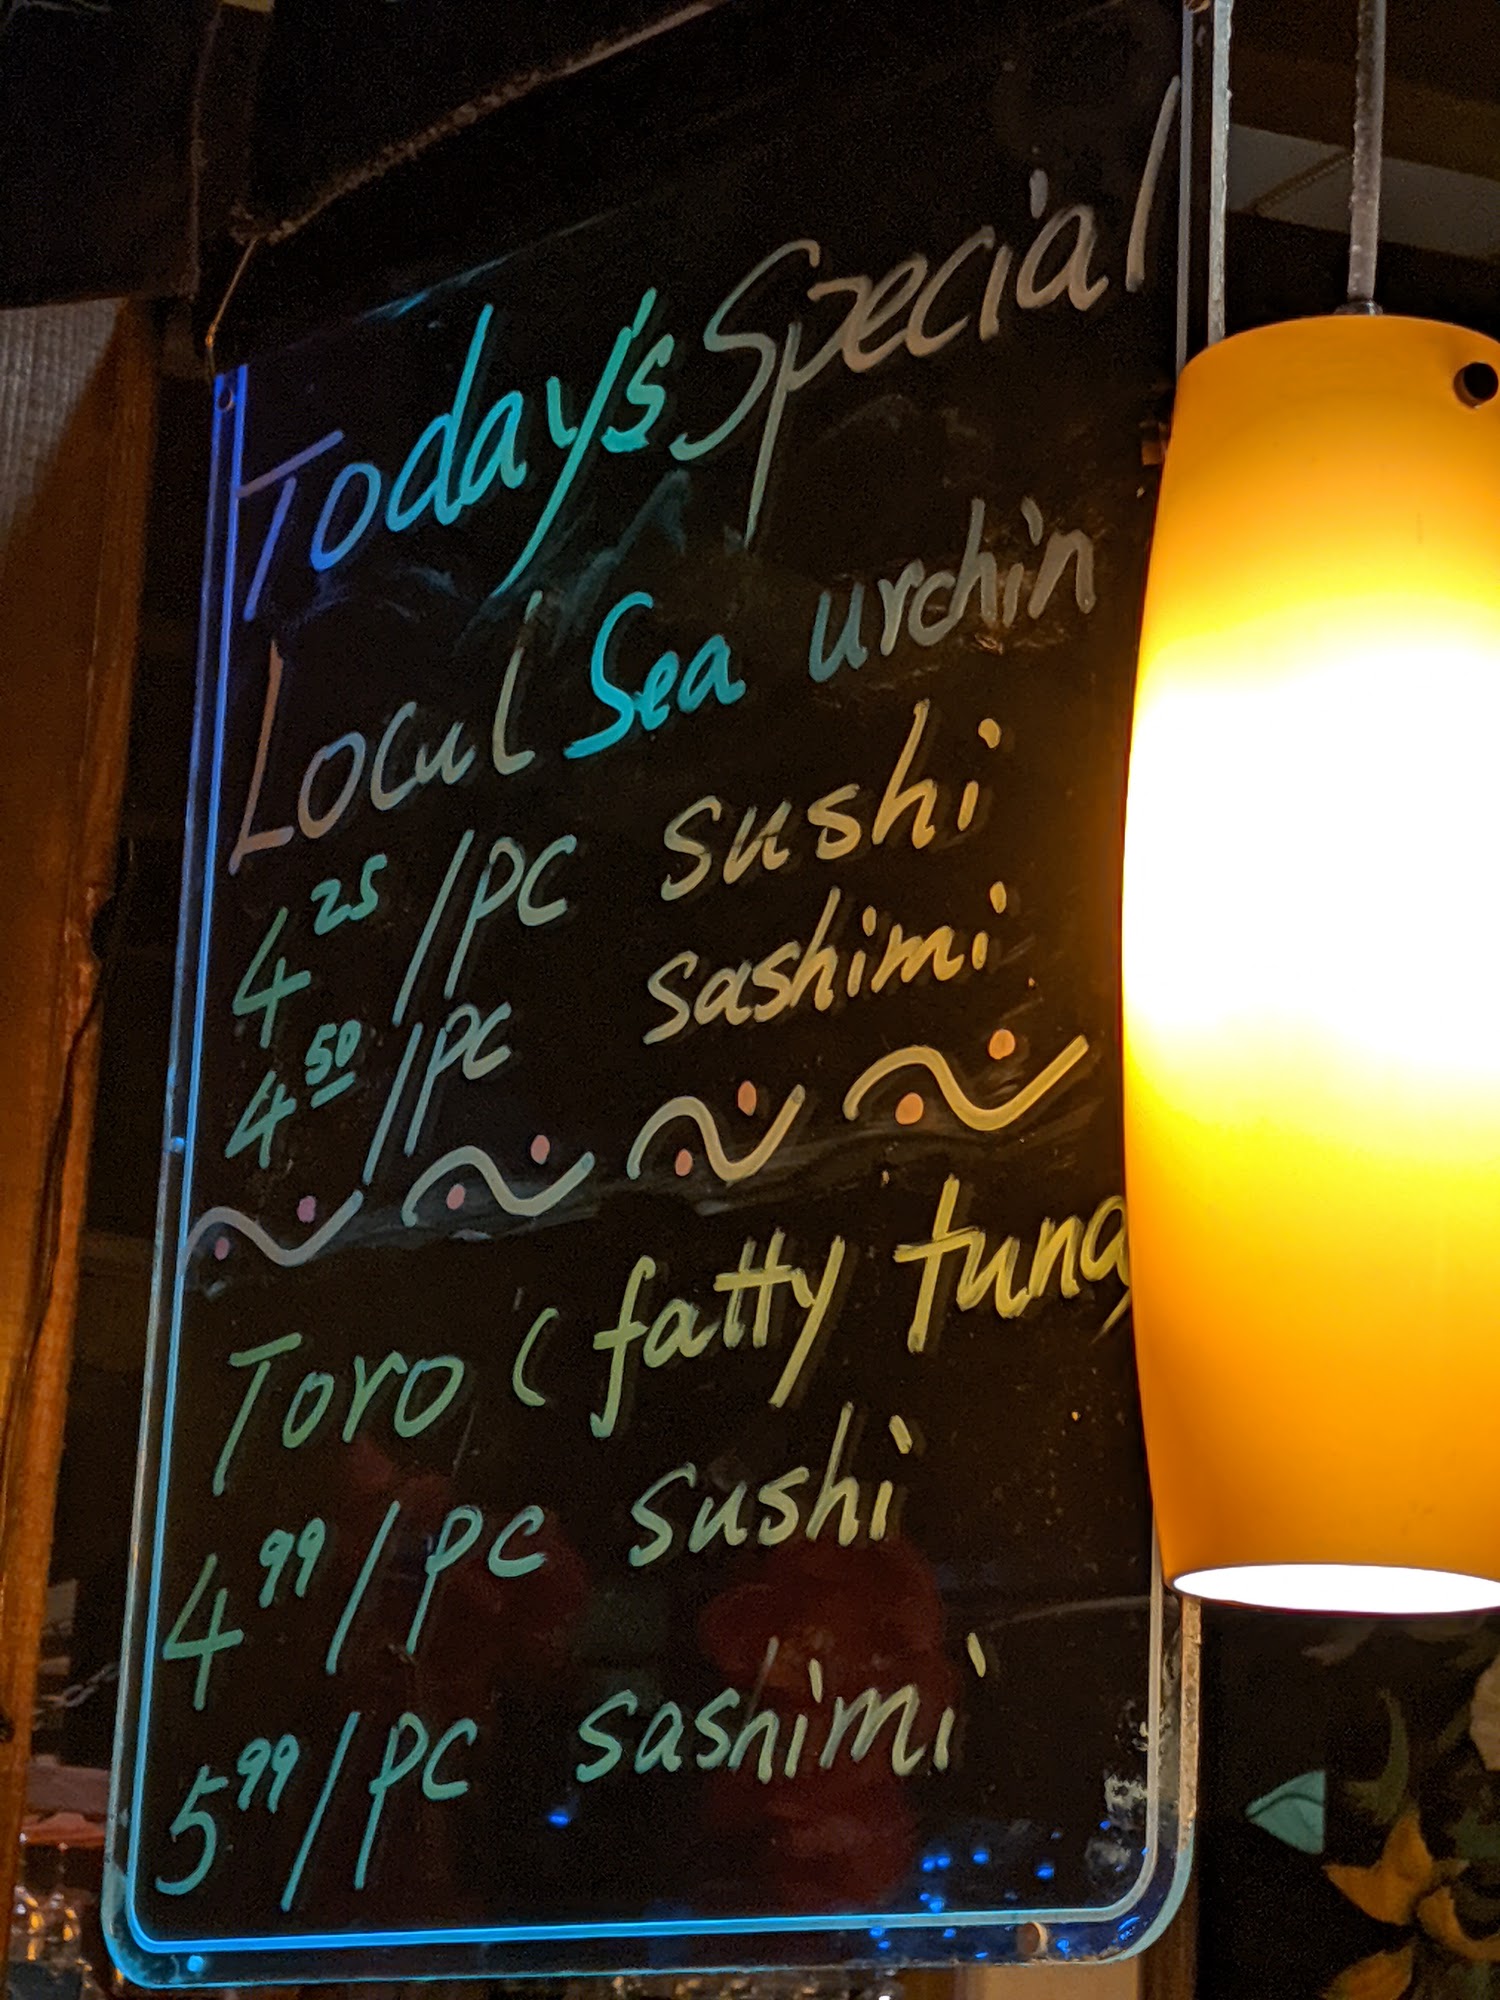 Today's Special
Local Sea urchin
4.25/PC sushi
4.50/PC sashimi
Toro (fatty tuna)
4.99/PC sushi
5.99/PC sashimi